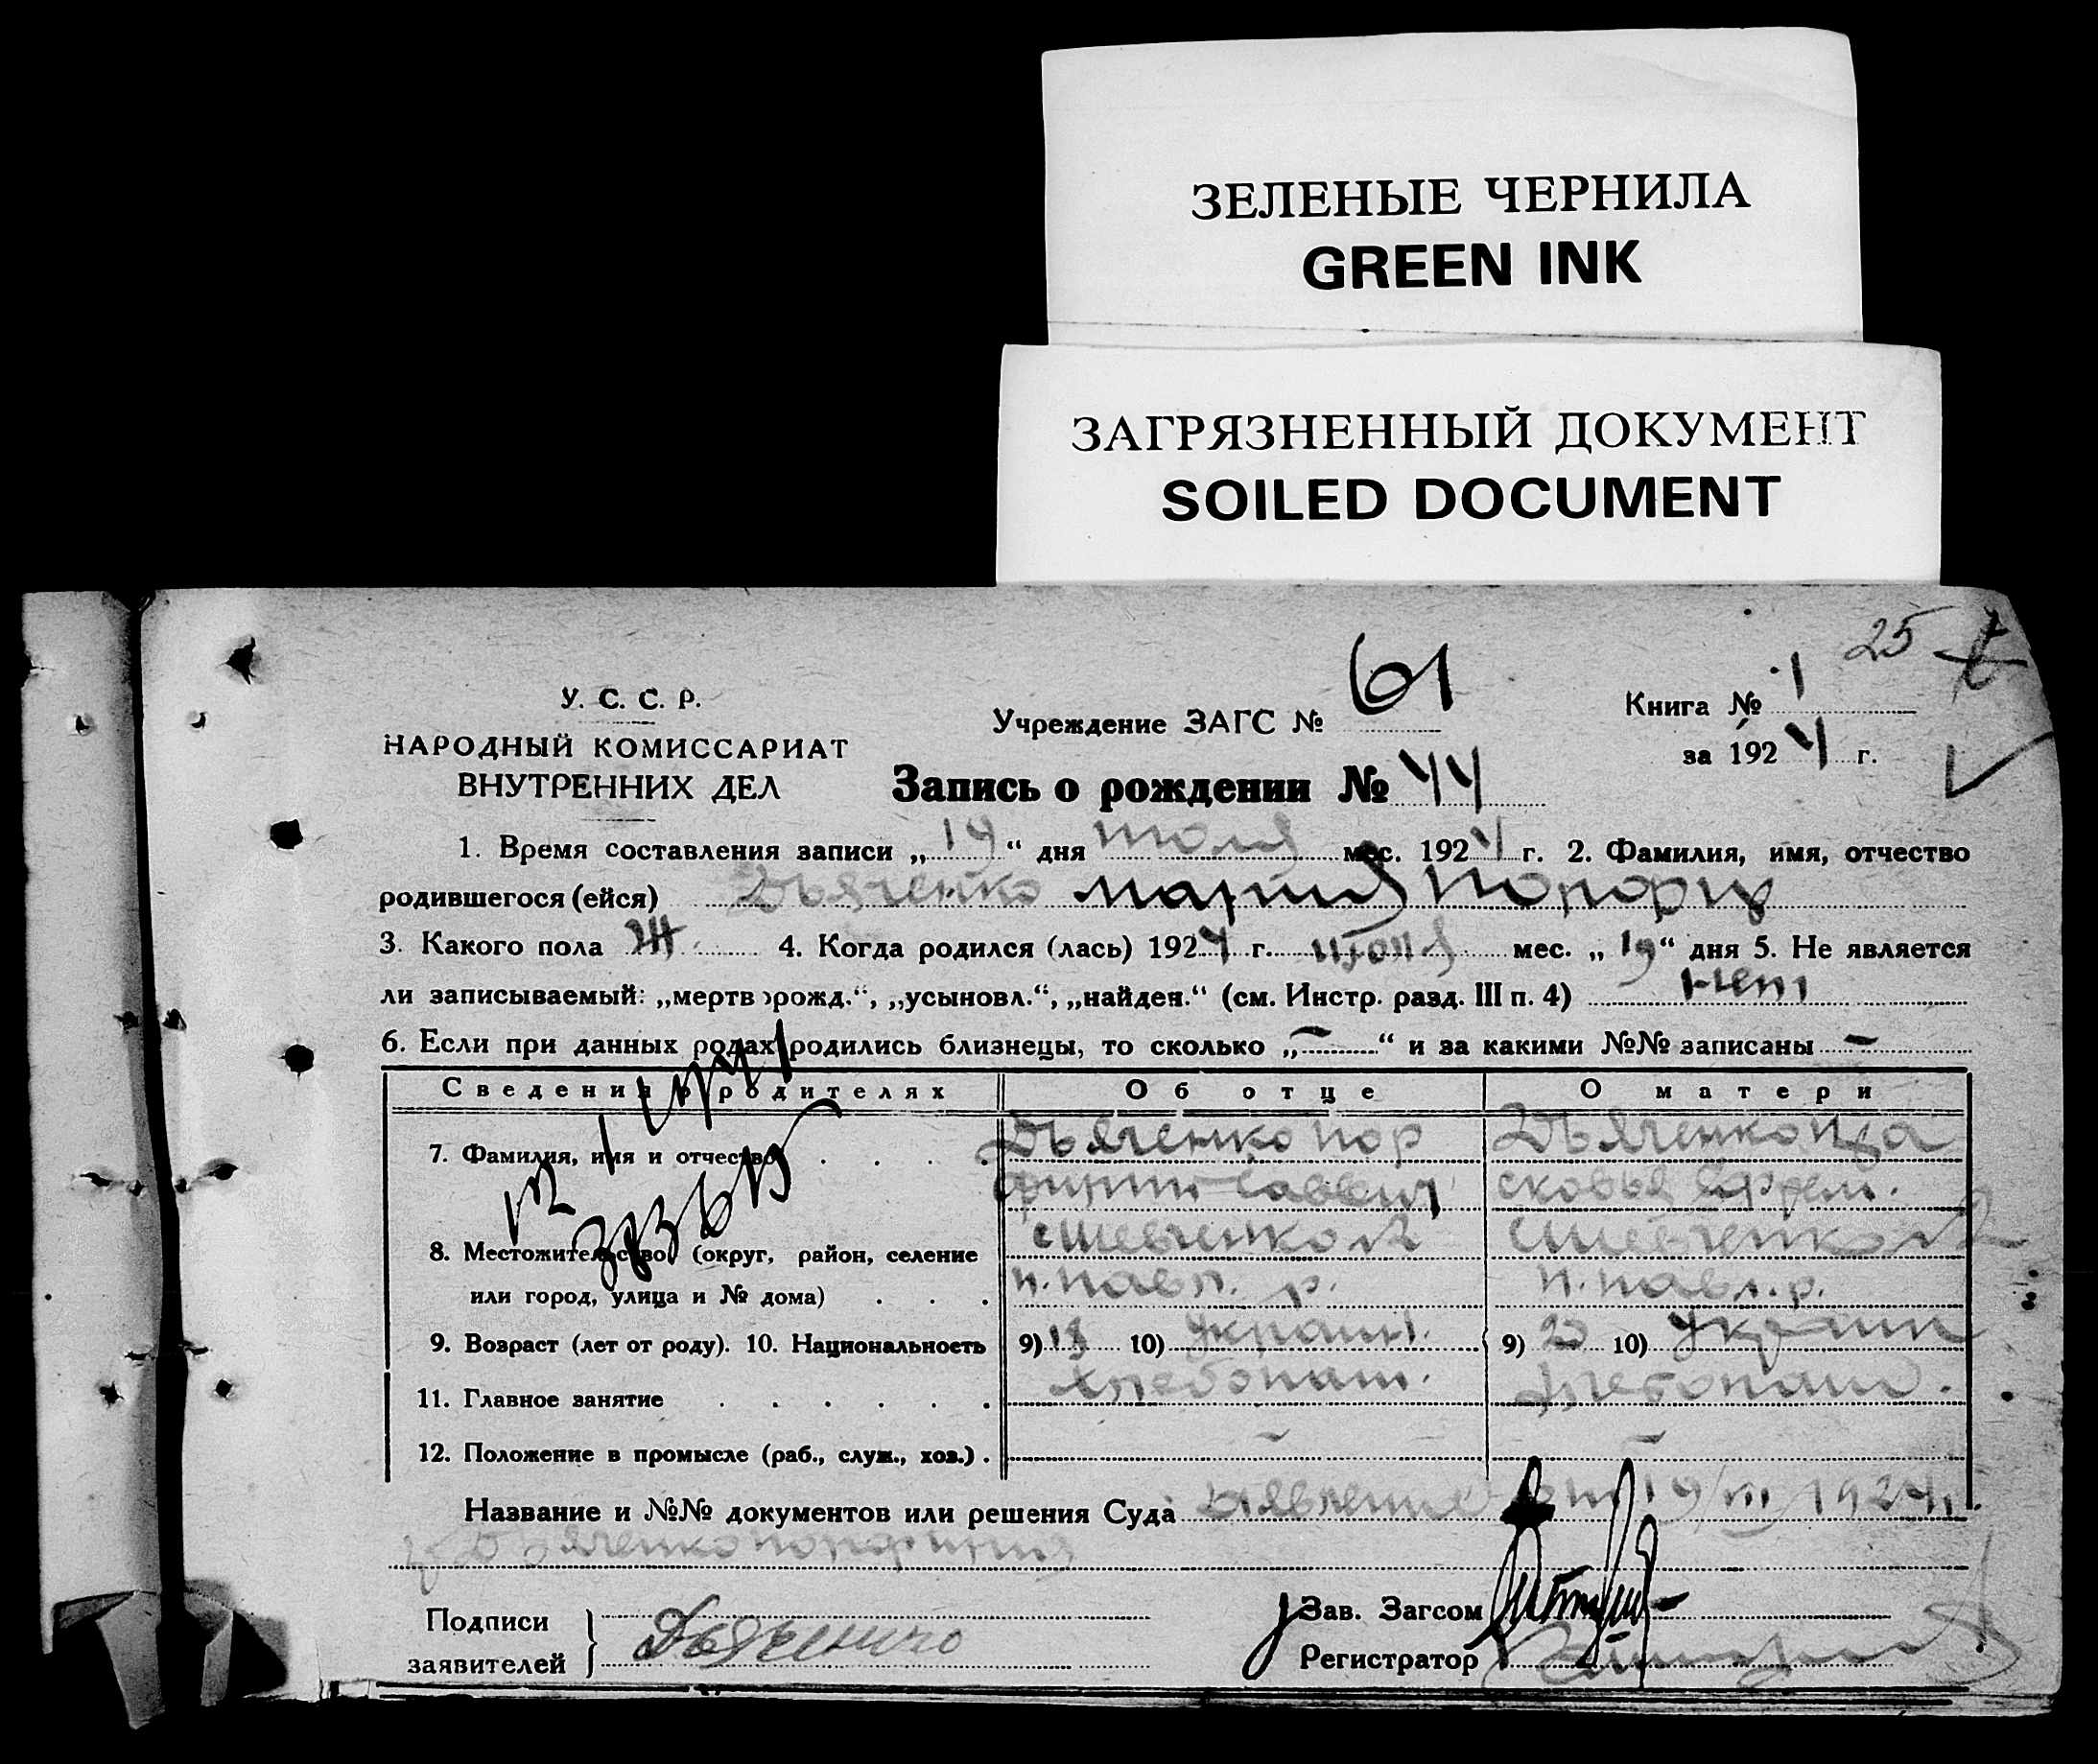 ЗЕЛЕНЫЕ ЧЕРНИЛА
GREEN INK
ЗАГРЯЗНЕННЫЙ ДОКУМЕНТ
SOILED DOCUMENT
25
У. С. С. Р.
НАРОДНЫЙ КОМИССАРИАТ
ВНУТРЕННИХ ДЕЛ
Учреждение ЗАГС № 61
Книга № 1
за 1924 г.
Запись о рождении № 44
1. Время составления записи „19“ дня июля мес. 1924 г. 2. Фамилия, имя, отчество
родившегося (ейся) Дьяченко Мария
3. Какого пола Ж 4. Когда родился (лась) 1924 г. мес. „19“ дня 5. Не является
ли записываемый: „мертворожд.“, „усыновл.“, „найден.“ (см. Инстр. разд. III п. 4) нет
6. Если при данных родах родились близнецы, то сколько „—“ и за какими №№ записаны —
Сведения о родителях Об отце О матери
7. Фамилия, имя и отчество Дьяченко Пор Дьяченко
фирий Саввич
8. Местожительство (округ, район, селение Шевченко Шевченко
или город, улица и № дома) п. павл. р. п. павл. р.
9. Возраст (лет от роду). 10. Национальность 9) 10) Украин. 9) 10) Украин
11. Главное занятие хлебопаш. хлебопаш.
12. Положение в промысле (раб., служ., хоз.) — —
Название и №№ документов или решения Суда 1924
Дьяченко
Подписи
заявителей Дьяченко
Зав. Загсом
Регистратор